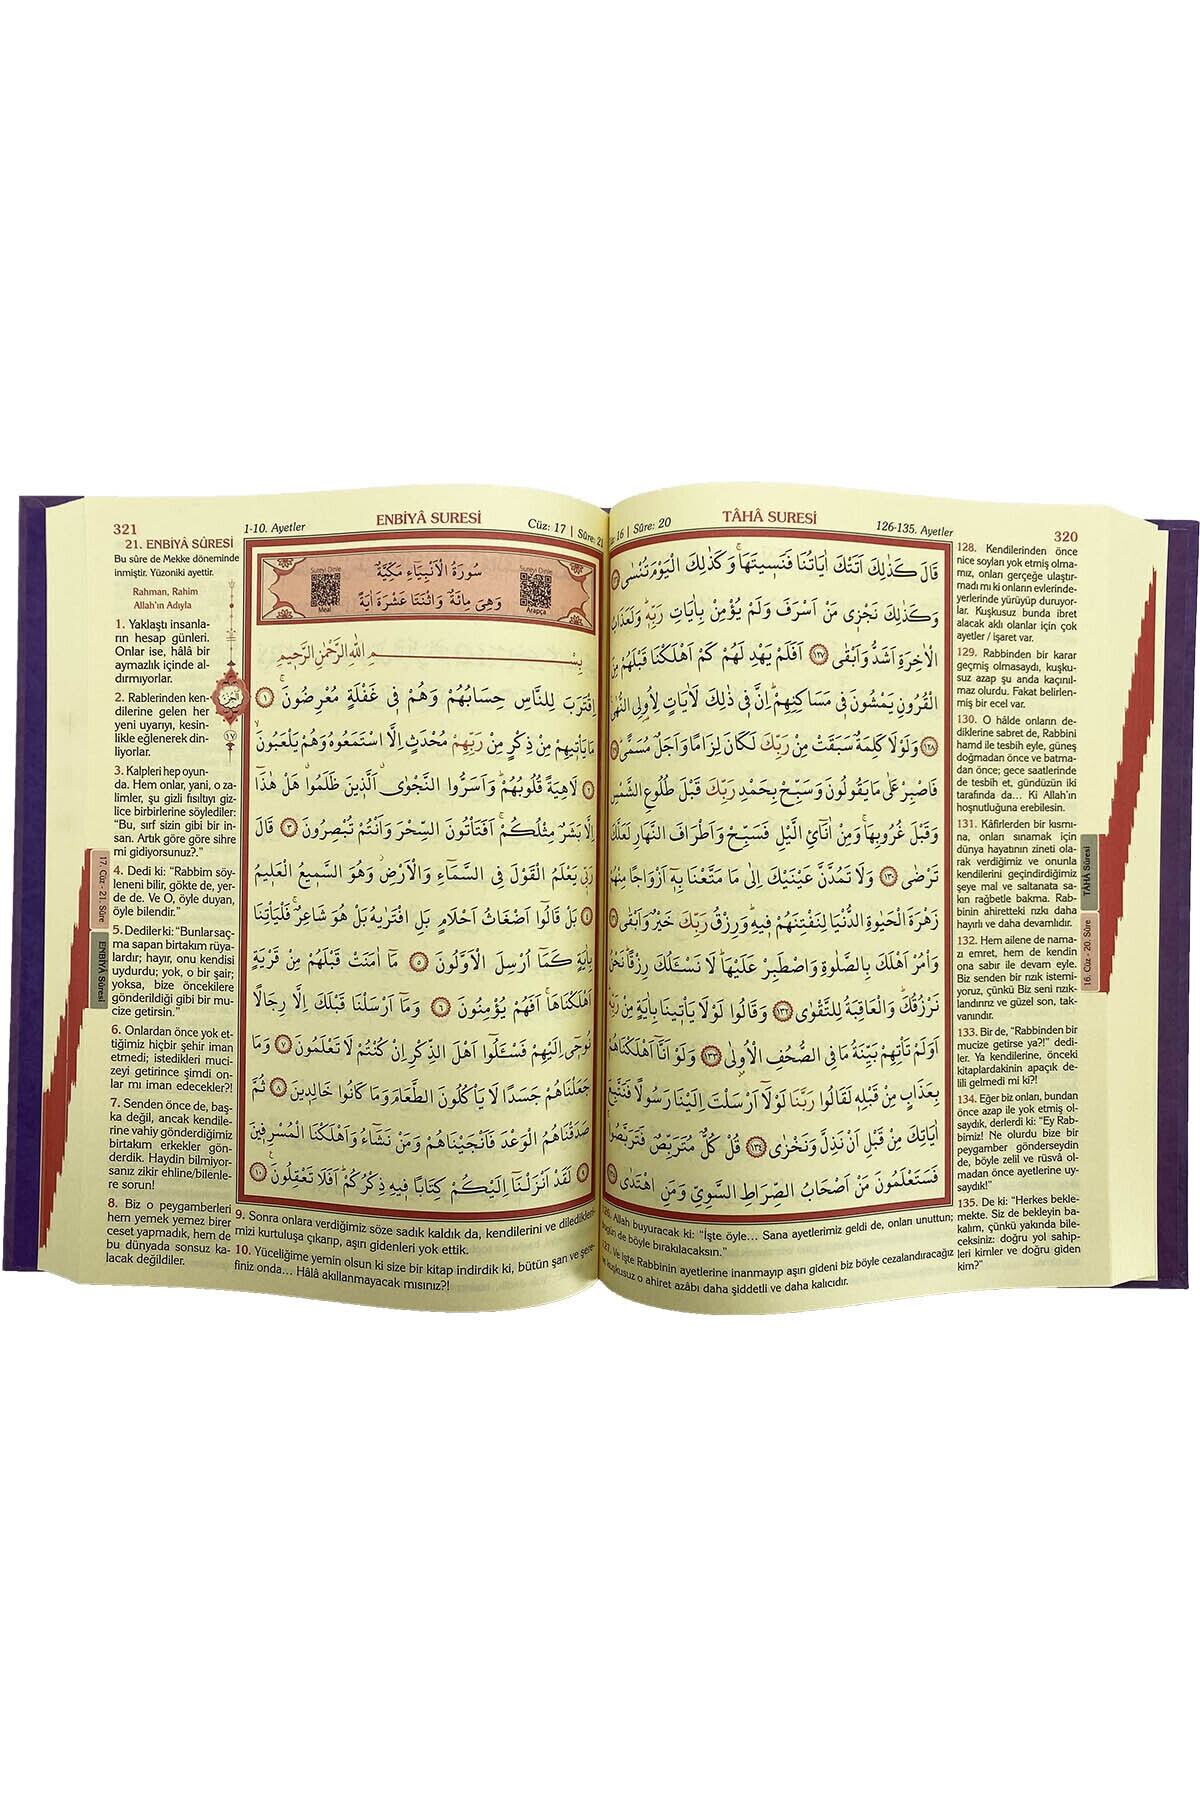 Cüz: 16 | Sûre: 20
TÂHÂ SURESİ
126-135. Ayetler
320
قَالَ كَذٰلِكَ اَتَتْكَ اٰيَاتُنَا فَنَسِيتَهَاۚ وَكَذٰلِكَ الْيَوْمَ تُنْسٰى
وَكَذٰلِكَ نَجْزٖى مَنْ اَسْرَفَ وَلَمْ يُؤْمِنْ بِاٰيَاتِ رَبِّهٖۜ وَلَعَذَابُ
الْاٰخِرَةِ اَشَدُّ وَاَبْقٰى ١٢٧ اَفَلَمْ يَهْدِ لَهُمْ كَمْ اَهْلَكْنَا قَبْلَهُمْ مِنَ
الْقُرُونِ يَمْشُونَ فٖى مَسَاكِنِهِمْۜ اِنَّ فٖى ذٰلِكَ لَاٰيَاتٍ لِاُو۬لِى النُّهٰى
١٢٨ وَلَوْلَا كَلِمَةٌ سَبَقَتْ مِنْ رَبِّكَ لَكَانَ لِزَامًا وَاَجَلٌ مُسَمًّىۜ
فَاصْبِرْ عَلٰى مَا يَقُولُونَ وَسَبِّحْ بِحَمْدِ رَبِّكَ قَبْلَ طُلُوعِ الشَّمْسِ
وَقَبْلَ غُرُوبِهَاۚ وَمِنْ اٰنَٓائِ الَّيْلِ فَسَبِّحْ وَاَطْرَافَ النَّهَارِ لَعَلَّكَ
تَرْضٰى ١٣٠ وَلَا تَمُدَّنَّ عَيْنَيْكَ اِلٰى مَا مَتَّعْنَا بِهٖٓ اَزْوَاجًا مِنْهُمْ
زَهْرَةَ الْحَيٰوةِ الدُّنْيَا لِنَفْتِنَهُمْ فٖيهِۜ وَرِزْقُ رَبِّكَ خَيْرٌ وَاَبْقٰى
وَأْمُرْ اَهْلَكَ بِالصَّلٰوةِ وَاصْطَبِرْ عَلَيْهَاۜ لَا نَسْـَٔلُكَ رِزْقًاۜ نَحْنُ
نَرْزُقُكَۜ وَالْعَاقِبَةُ لِلتَّقْوٰى ١٣٢ وَقَالُوا لَوْلَا يَأْتٖينَا بِاٰيَةٍ مِنْ رَبِّهٖۜ
اَوَلَمْ تَأْتِهِمْ بَيِّنَةُ مَا فِى الصُّحُفِ الْاُو۫لٰى ١٣٣ وَلَوْ اَنَّٓا اَهْلَكْنَاهُمْ
بِعَذَابٍ مِنْ قَبْلِهٖ لَقَالُوا رَبَّنَا لَوْلَٓا اَرْسَلْتَ اِلَيْنَا رَسُولًا فَنَتَّبِعَ
اٰيَاتِكَ مِنْ قَبْلِ اَنْ نَذِلَّ وَنَخْزٰى ١٣٤ قُلْ كُلٌّ مُتَرَبِّصٌ فَتَرَبَّصُواۚ
فَسَتَعْلَمُونَ مَنْ اَصْحَابُ الصِّرَاطِ السَّوِىِّ وَمَنِ اهْتَدٰى
126. Allah buyuracak ki: "İşte öyle… Sana ayetlerimiz geldi de, onları unuttun;
bugün de böyle bırakılacaksın."
127. Ve işte Rabbinin ayetlerine inanmayıp aşırı gideni biz böyle cezalandıracağız
ve kuşkusuz o ahiret azâbı daha şiddetli ve daha kalıcıdır.
128. Kendilerinden önce
nice soyları yok etmiş olma-
mız, onları gerçeğe ulaştır-
madı mı ki onların evlerinde-
yerlerinde yürüyüp duruyor-
lar. Kuşkusuz bunda ibret
alacak aklı olanlar için çok
ayetler / işaret var.
129. Rabbinden bir karar
geçmiş olmasaydı, kuşku-
suz azap şu anda kaçınıl-
maz olurdu. Fakat belirlen-
miş bir ecel var.
130. O hâlde onların de-
diklerine sabret de, Rabbini
hamd ile tesbih eyle, güneş
doğmadan önce ve batma-
dan önce; gece saatlerinde
de tesbih et, gündüzün iki
tarafında da… Ki Allah'ın
hoşnutluğuna erebilesin.
131. Kâfirlerden bir kısmı-
na, onları sınamak için
dünya hayatının zineti ola-
rak verdiğimiz ve onunla
kendilerini geçindirdiğimiz
şeye mal ve saltanata sa-
kın rağbetle bakma. Rab-
binin ahiretteki rızkı daha
hayırlı ve daha devamlıdır.
132. Hem ailene de nama-
zı emret, hem de kendin
ona sabır ile devam eyle.
Biz senden bir rızık istemi-
yoruz, çünkü Biz seni rızık-
landırırız ve güzel son, tak-
vanındır.
133. Bir de, "Rabbinden bir
mucize getirse ya?!" dedi-
ler. Ya kendilerine, önceki
kitaplardakinin apaçık de-
lili gelmedi mi ki?!
134. Eğer biz onları, bundan
önce azap ile yok etmiş ol-
saydık, derlerdi ki: "Ey Rab-
bimiz! Ne olurdu bize bir
peygamber gönderseydin
de, böyle zelil ve rüsvâ ol-
madan önce ayetlerine uy-
saydık!"
135. De ki: "Herkes bekle-
mekte. Siz de bekleyin ba-
kalım, çünkü yakında bile-
ceksiniz: doğru yol sahip-
leri kimler ve doğru giden
kim?"
TÂHÂ Sûresi
16. Cüz - 20. Sûre
321
1-10. Ayetler
ENBİYÂ SURESİ
Cüz: 17 | Sûre: 21
Sureyi Dinle
Meal
سُورَةُ الْاَنْبِيَٓاءِ مَكِّيَّةٌ
وَهِىَ مِائَةٌ وَاثْنَتَا عَشْرَةَ اٰيَةً
Sureyi Dinle
Arapça
بِسْمِ اللّٰهِ الرَّحْمٰنِ الرَّحٖيمِ
اِقْتَرَبَ لِلنَّاسِ حِسَابُهُمْ وَهُمْ فٖى غَفْلَةٍ مُعْرِضُونَۚ ١
مَا يَأْتٖيهِمْ مِنْ ذِكْرٍ مِنْ رَبِّهِمْ مُحْدَثٍ اِلَّا اسْتَمَعُوهُ وَهُمْ يَلْعَبُونَۙ
٢ لَاهِيَةً قُلُوبُهُمْۜ وَاَسَرُّوا النَّجْوٰىۗ اَلَّذٖينَ ظَلَمُواۗ هَلْ هٰذَٓا
اِلَّا بَشَرٌ مِثْلُكُمْۚ اَفَتَأْتُونَ السِّحْرَ وَاَنْتُمْ تُبْصِرُونَ ٣ قَالَ
رَبّٖى يَعْلَمُ الْقَوْلَ فِى السَّمَٓاءِ وَالْاَرْضِۘ وَهُوَ السَّمٖيعُ الْعَلٖيمُ
٤ بَلْ قَالُٓوا اَضْغَاثُ اَحْلَامٍ بَلِ افْتَرٰيهُ بَلْ هُوَ شَاعِرٌۚ فَلْيَأْتِنَا
بِاٰيَةٍ كَمَٓا اُرْسِلَ الْاَوَّلُونَ ٥ مَٓا اٰمَنَتْ قَبْلَهُمْ مِنْ قَرْيَةٍ
اَهْلَكْنَاهَاۚ اَفَهُمْ يُؤْمِنُونَ ٦ وَمَٓا اَرْسَلْنَا قَبْلَكَ اِلَّا رِجَالًا
نُوحٖٓى اِلَيْهِمْ فَسْـَٔلُٓوا اَهْلَ الذِّكْرِ اِنْ كُنْتُمْ لَا تَعْلَمُونَ ٧ وَمَا
جَعَلْنَاهُمْ جَسَدًا لَا يَأْكُلُونَ الطَّعَامَ وَمَا كَانُوا خَالِدٖينَ ٨ ثُمَّ
صَدَقْنَاهُمُ الْوَعْدَ فَاَنْجَيْنَاهُمْ وَمَنْ نَشَٓاءُ وَاَهْلَكْنَا الْمُسْرِفٖينَ
٩ لَقَدْ اَنْزَلْنَٓا اِلَيْكُمْ كِتَابًا فٖيهِ ذِكْرُكُمْۜ اَفَلَا تَعْقِلُونَ۟ ١٠
اَلْجُزْءُ
١٧
21. ENBİYÂ SÛRESİ
Bu sûre de Mekke döneminde
inmiştir. Yüzoniki ayettir.
Rahman, Rahim
Allah'ın Adıyla
1. Yaklaştı insanla-
rın hesap günleri.
Onlar ise, hâlâ bir
aymazlık içinde al-
dırmıyorlar.
2. Rablerinden ken-
dilerine gelen her
yeni uyarıyı, kesin-
likle eğlenerek din-
liyorlar.
3. Kalpleri hep oyun-
da. Hem onlar, yani, o za-
limler, şu gizli fısıltıyı giz-
lice birbirlerine söylediler:
"Bu, sırf sizin gibi bir in-
san. Artık göre göre sihre
mi gidiyorsunuz?."
4. Dedi ki: "Rabbim söy-
leneni bilir, gökte de, yer-
de de. Ve O, öyle duyan,
öyle bilendir."
5. Dediler ki: "Bunlar saç-
ma sapan birtakım rüya-
lardır; hayır, onu kendisi
uydurdu; yok, o bir şair;
yoksa, bize öncekilere
gönderildiği gibi bir mu-
cize getirsin."
6. Onlardan önce yok et-
tiğimiz hiçbir şehir iman
etmedi; istedikleri muci-
zeyi getirince şimdi on-
lar mı iman edecekler?!
7. Senden önce de, baş-
ka değil, ancak kendile-
rine vahiy gönderdiğimiz
birtakım erkekler gön-
derdik. Haydin bilmiyor-
sanız zikir ehline/bilenle-
re sorun!
8. Biz o peygamberleri
hem yemek yemez birer
ceset yapmadık, hem de
bu dünyada sonsuz ka-
lacak değildiler.
9. Sonra onlara verdiğimiz söze sadık kaldık da, kendilerini ve diledikleri-
mizi kurtuluşa çıkarıp, aşırı gidenleri yok ettik.
10. Yüceliğime yemin olsun ki size bir kitap indirdik ki, bütün şan ve şere-
finiz onda… Hâlâ akıllanmayacak mısınız?!
17. Cüz - 21. Sûre
ENBİYÂ Sûresi